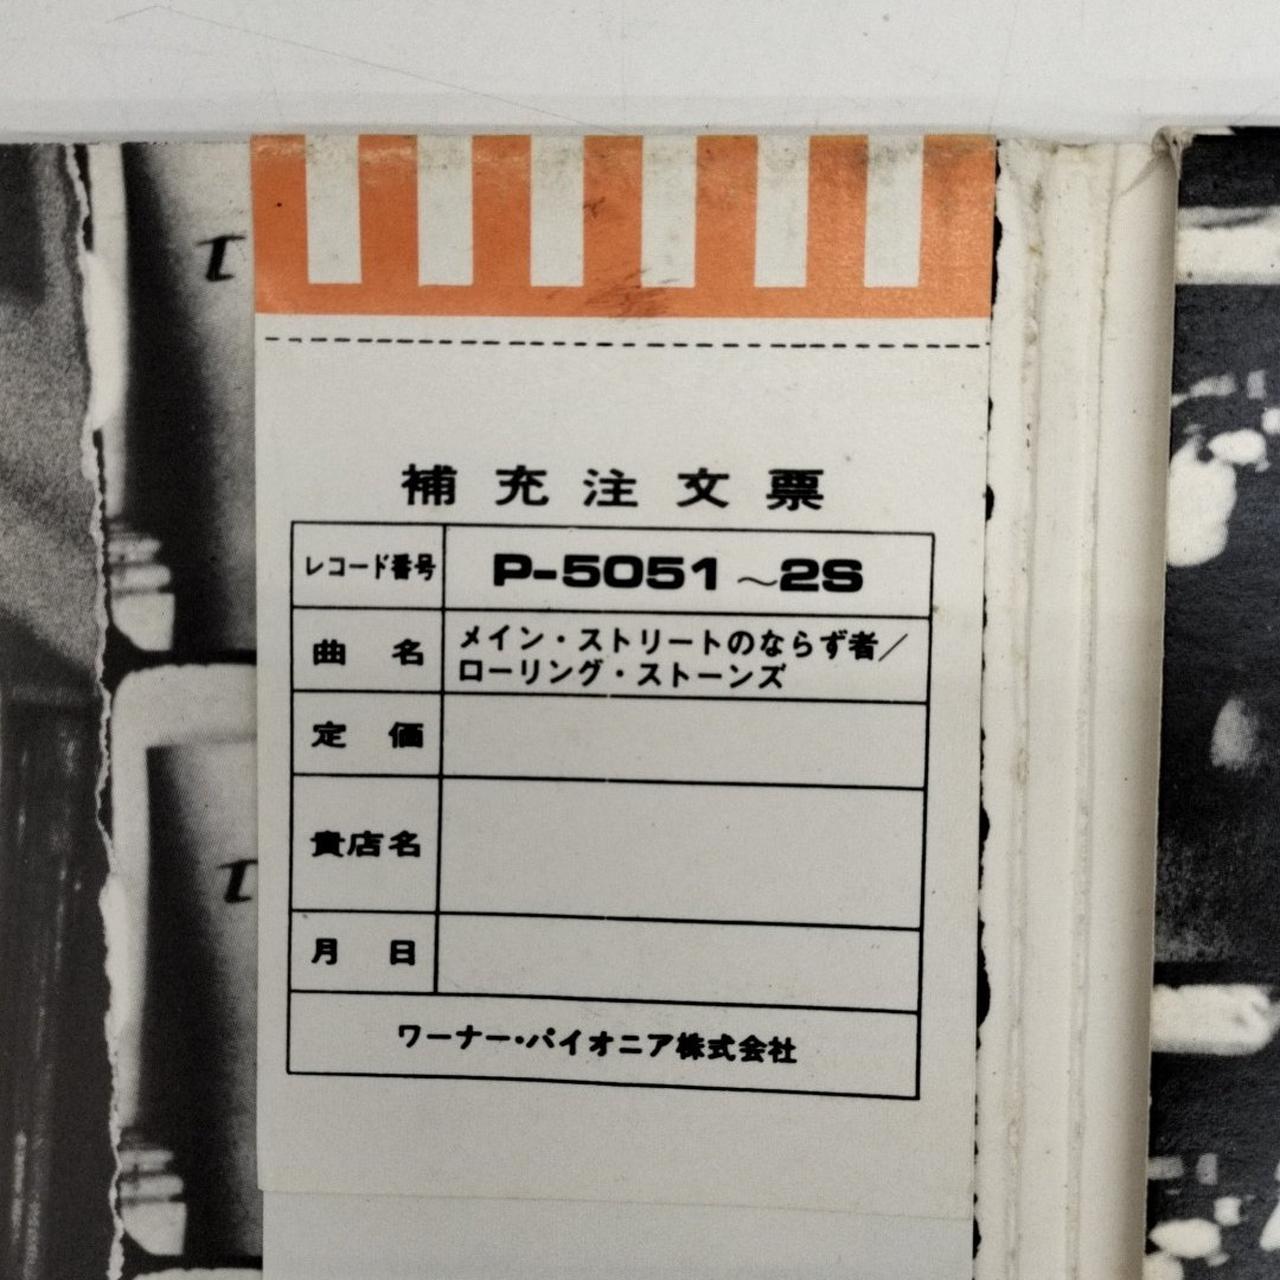 補充注文票
レコード番号 P-5051～2S
曲名 メイン・ストリートのならず者／
ローリング・ストーンズ
定価
貴店名
月日
ワーナー・パイオニア株式会社